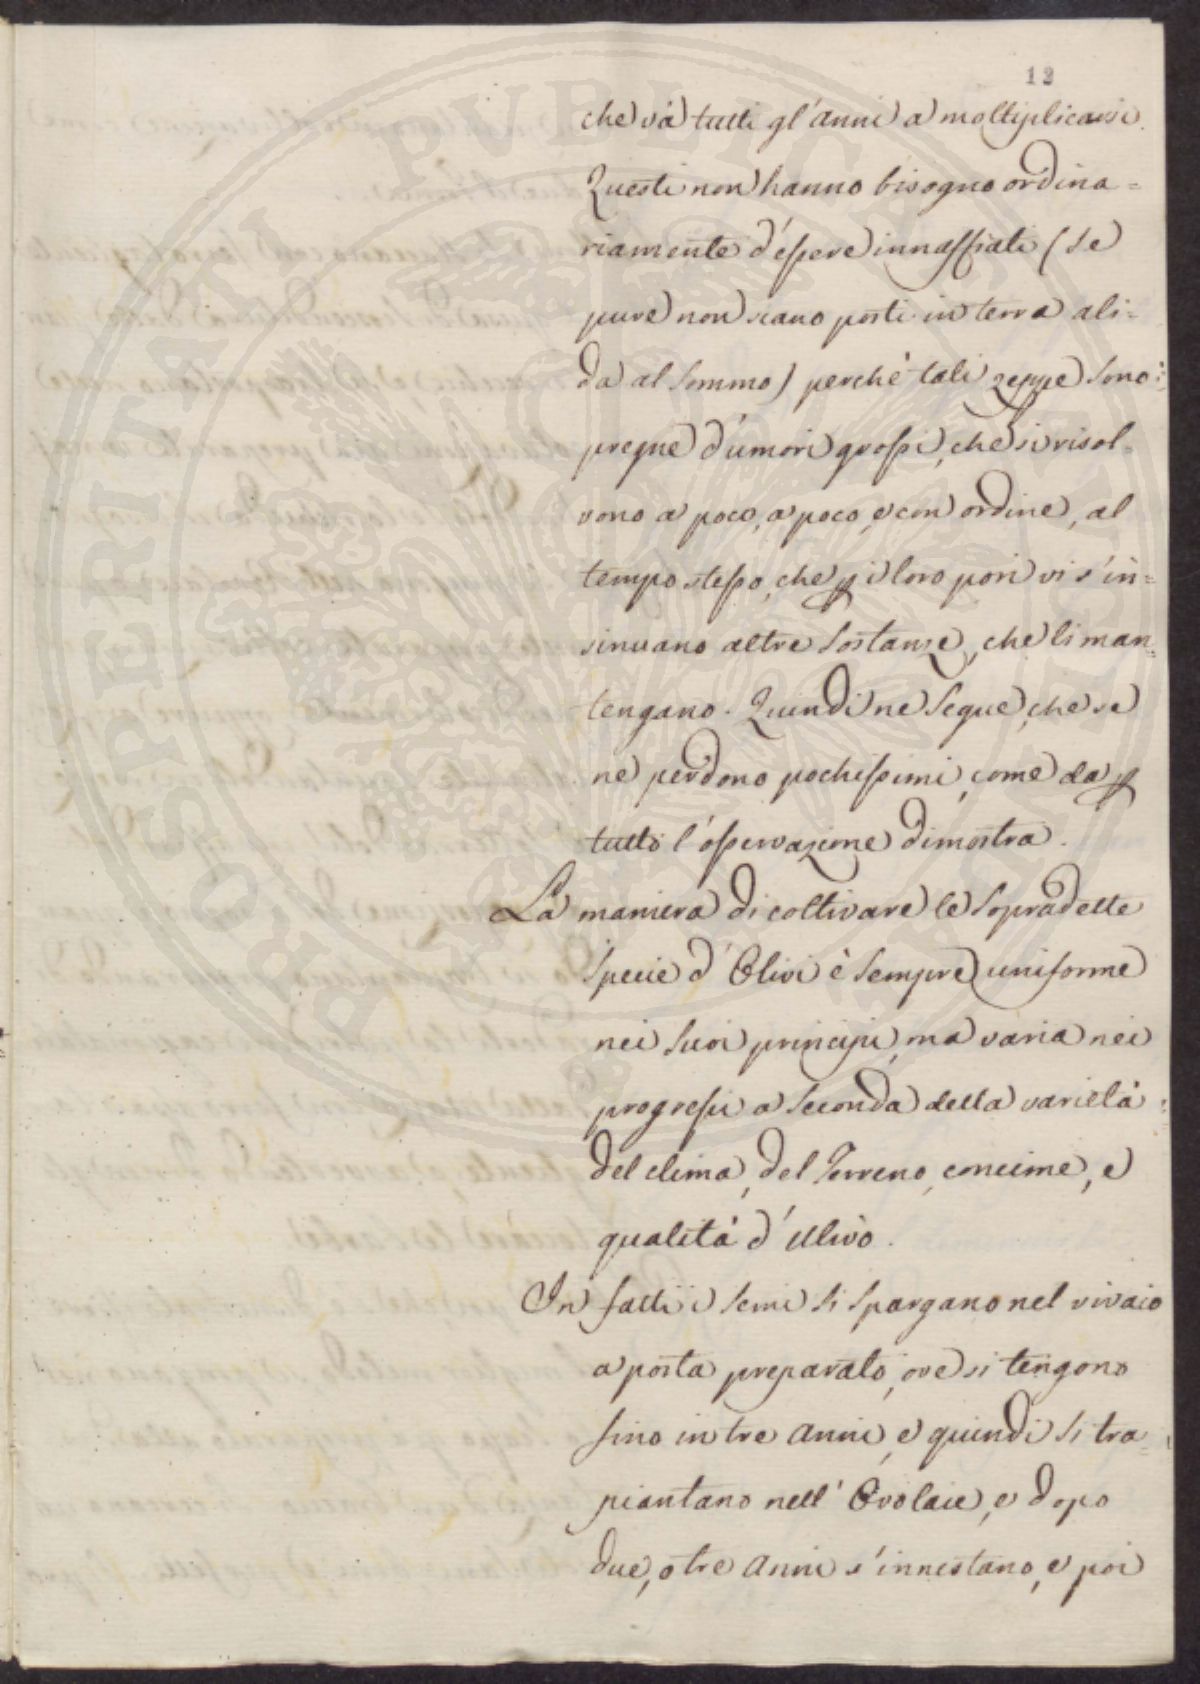 12
che và tutti gl'anni a moltiplicarsi.
Questi non hanno bisogno ordina=
riamente d'essere innaffiati (se
pure non siano posti in terra ali=
da al sommo) perche tali zeppe sono
pregne d'umori grossi, che si risol=
vono a poco, a poco, e con ordine, al
tempo stesso, che p i loro pori vi s'in=
sinuano altre sostanze, che li man=
tengano. Quindi ne segue, che se
ne perdono pochissimi, come da p
tutto l'osservazione dimostra.
La maniera di coltivare le sopradette
specie d'Olivi è sempre uniforme
nei suoi principii, ma varia nei
progressi a seconda della varietà
del clima, del Terreno, concime, e
qualità d'Ulivo.
In fatti i semi si spargano nel vivaio
a posta preparato, ove si tengono
fino in tre anni, e quindi si tra=
piantano nell'Ovolaie, e dopo
due, o tre anni s'innestano, e poi
PROSPERITATI PVBLICAE